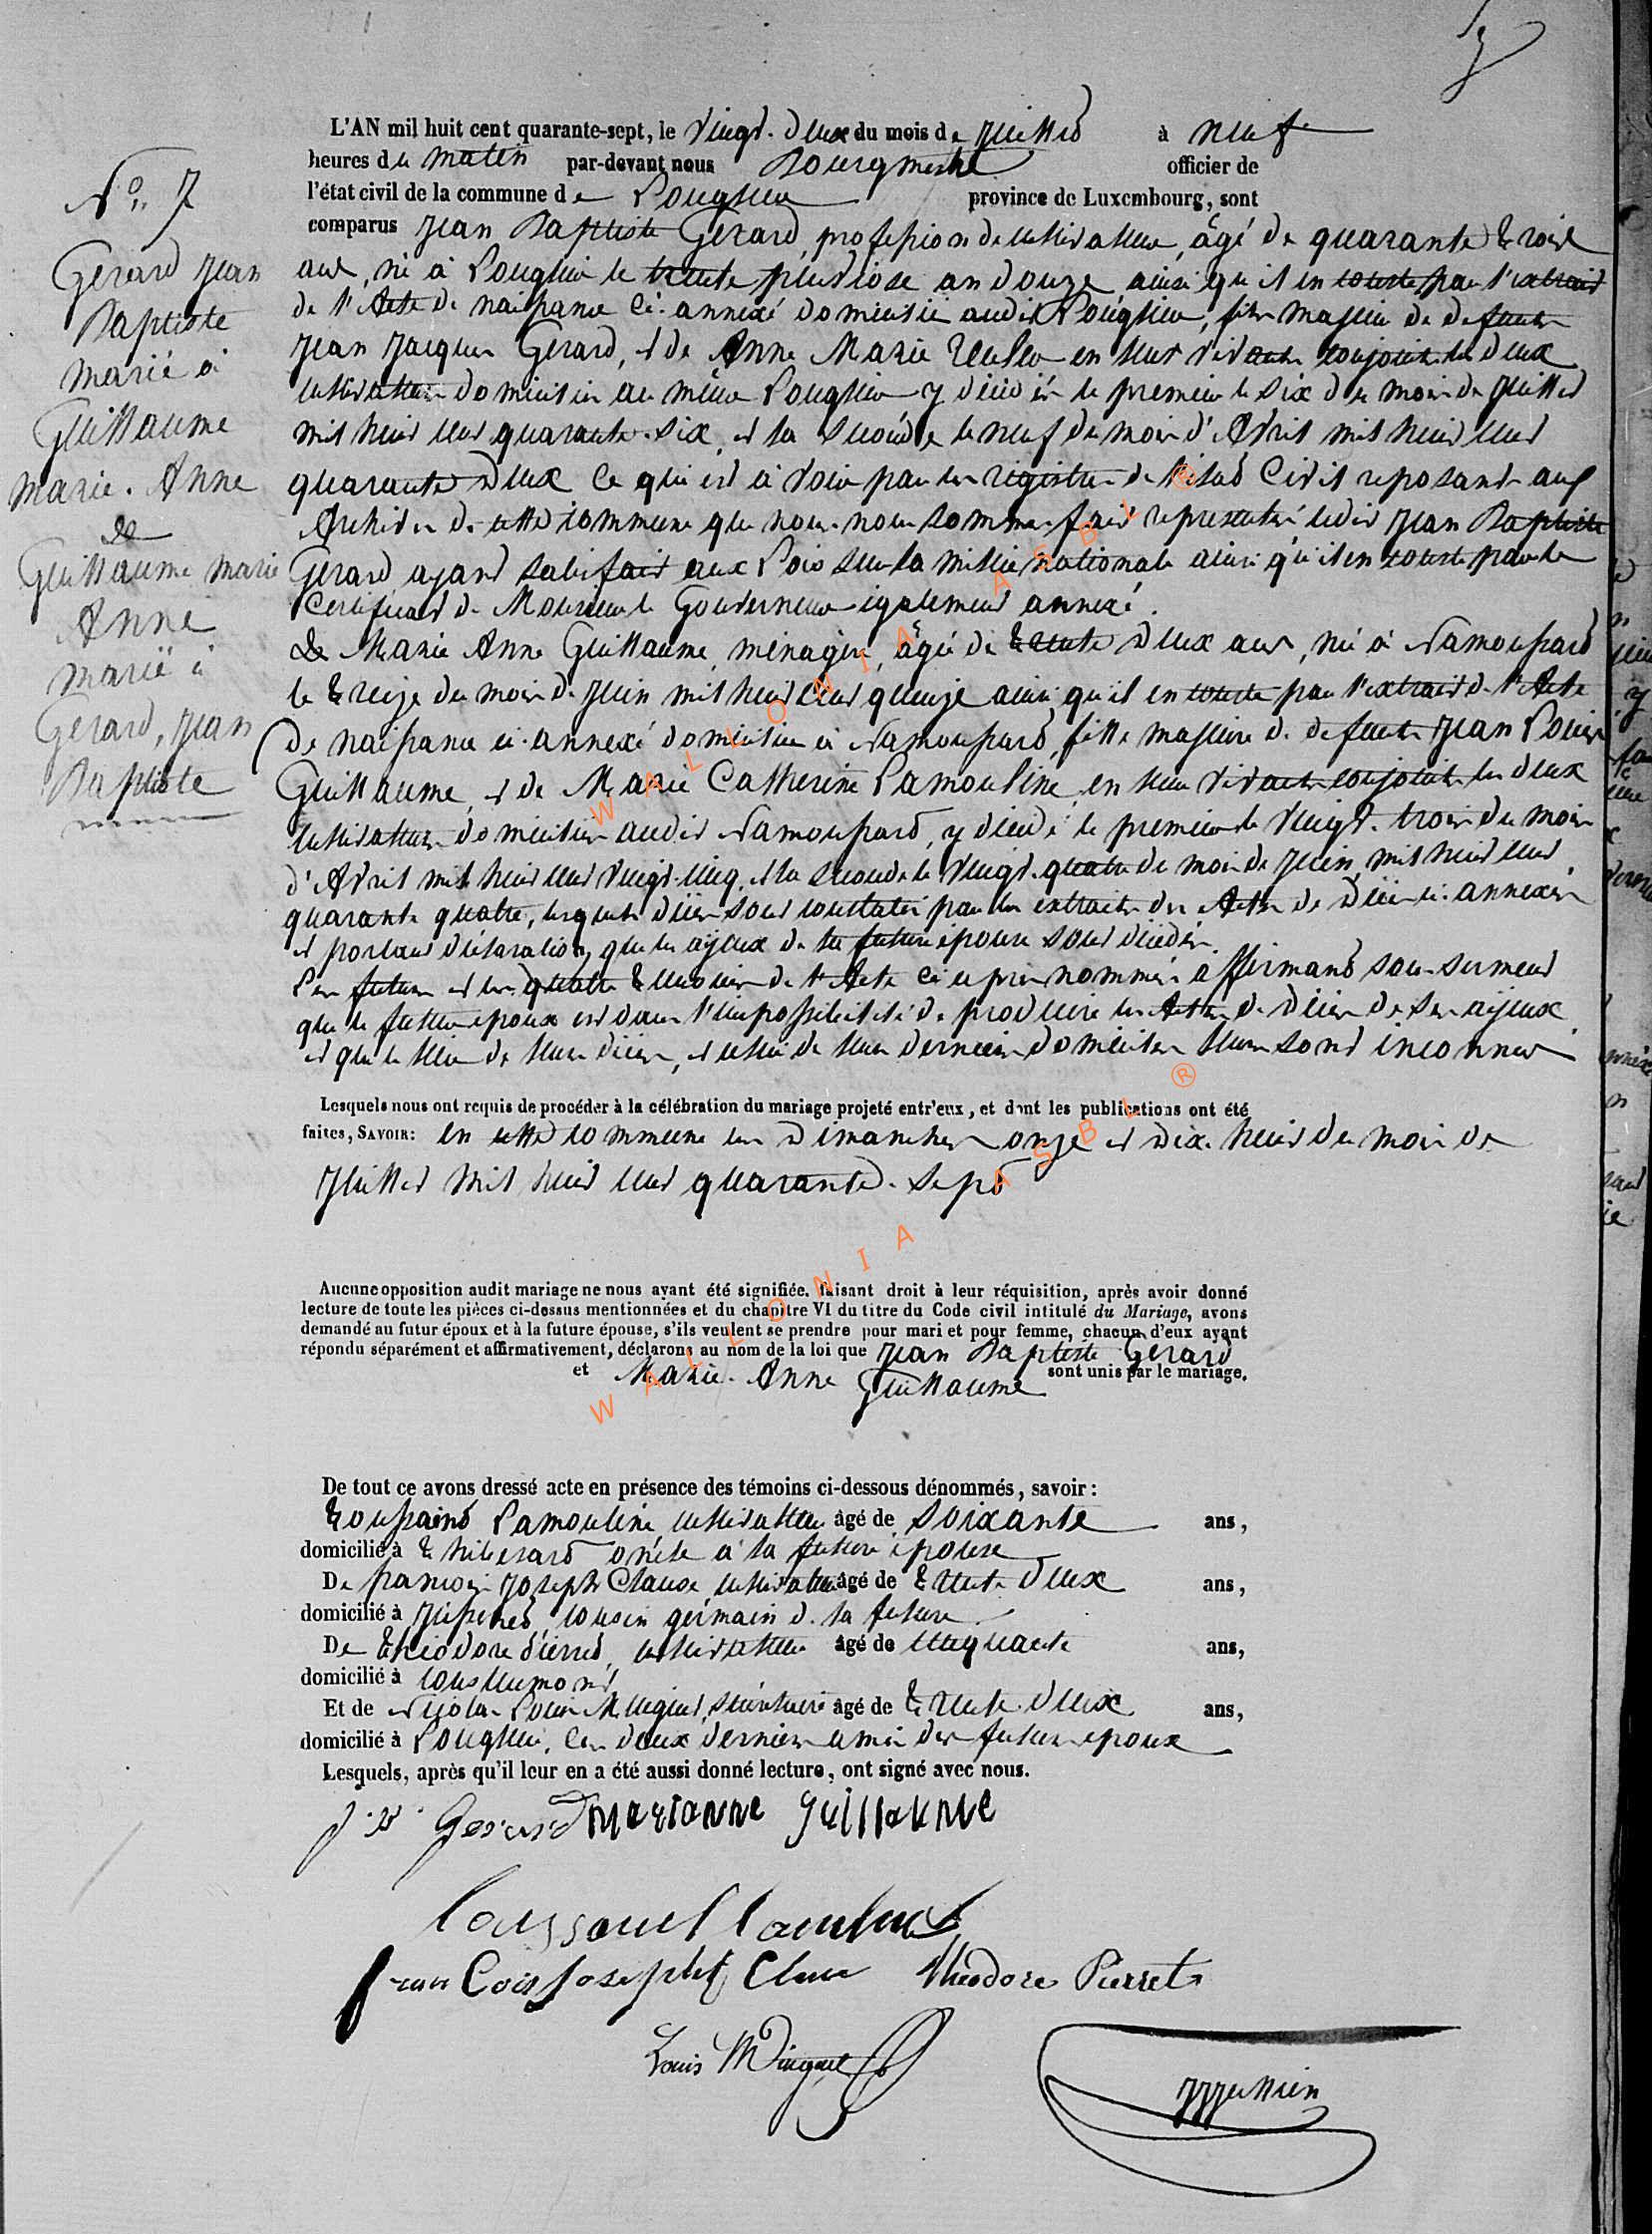 L'AN mil huit cent quarante-sept, le vingt-deux du mois de Juillet à neuf
heures du matin par-devant nous Bourgmestre officier de
l'état civil de la commune de Longlier province de Luxembourg, sont
comparus Jean Baptiste Gerard, profession de cultivateur, âgé de quarante trois
ans, né à Longlier le trente pluviose an douze, ainsi qu'il en conste par l'extrait
de l'Acte de naissance ci-annexé domicilié audit Longlier, fils majeur de defunts
Jean Jacques Gerard, et de Anne Marie en leur vivant conjoints les deux
cultivateurs domiciliés au même Longlier y décédés le premier le six du mois de Juillet
mil huit cent quarante-six, et la seconde le neuf du mois d'Avril mil huit cent
quarante deux ce qui est à voir par les registres de l'état Civil reposant aux
Archives de cette commune que nous nous sommes fait representés ledit Jean Baptiste
Gerard ayant satisfait aux Lois sur la milice nationale ainsi qu'il en conste par le
Certificat de Monsieur le Gouverneur également annexé.
Et Marie Anne Guillaume, ménagère, âgée de trente deux ans, née à Namoussard
le treize du mois de Juin mil huit cent quinze ainsi qu'il en conste par l'extrait de l'Acte
de naissance ci-annexé domiciliée à Namoussard, fille majeure de defunts Jean Louis
Guillaume, et de Marie Catherine Lamouline, en leur vivant conjoints les deux
cultivateurs domiciliés audit Namoussard, y décédés le premier le vingt-trois du mois
d'Avril mil huit cent vingt-cinq, et la seconde le vingt-quatre du mois de Juin, mil huit cent
quarante quatre, lesquels décès sont constatés par les extraits des Actes de décès ci-annexés
et portant déclaration que les ajeux de la future épouse sont décédés.
Les futurs et les quatre témoins de l'Acte ci après nommés affirmant sous serment
que le futur époux est dans l'impossibilité de produire les Actes de décès de ses ajeux
et que le lieu de leur décès, et celui de leur dernier domicile leur sont inconnus
Lesquels nous ont requis de procéder à la célébration du mariage projeté entr'eux, et dont les publications ont été
faites, SAVOIR: en cette commune les Dimanches onze et dix-huit du mois de
Juillet mil huit cent quarante-sept
Aucune opposition audit mariage ne nous ayant été signifiée, faisant droit à leur réquisition, après avoir donné
lecture de toute les pièces ci-dessus mentionnées et du chapitre VI du titre du Code civil intitulé du Mariage, avons
demandé au futur époux et à la future épouse, s'ils veulent se prendre pour mari et pour femme, chacun d'eux ayant
répondu séparément et affirmativement, déclarons au nom de la loi que Jean Baptiste Gerard
et Marie-Anne Guillaume sont unis par le mariage.
De tout ce avons dressé acte en présence des témoins ci-dessous dénommés, savoir:
Toussaint Lamouline, cultivateur âgé de soixante ans,
domicilié à Thibessart oncle à la future épouse
De françois Joseph Clause, cultivateur âgé de trente deux ans,
domicilié à Juseret, cousin germain de la future
De Théodore Pierret, cultivateur âgé de cinquante ans,
domicilié à Coustumont
Et de Nicolas Louis secrétaire âgé de trente-deux ans,
domicilié à Longlier, les deux derniers amis des futurs epoux
Lesquels, après qu'il leur en a été aussi donné lecture, ont signé avec nous.
J. B. Gerard Marianne Guillaume
francois Joseph Clause Théodore Pierret
Louis
N° 7
Gerard Jean
Baptiste
marié à
Guillaume
Marie-Anne
&
Guillaume Marie
Anne
marië à
Gerard, Jean
Baptiste
WALLONIA ASBL ®
WALLONIA ASBL ®